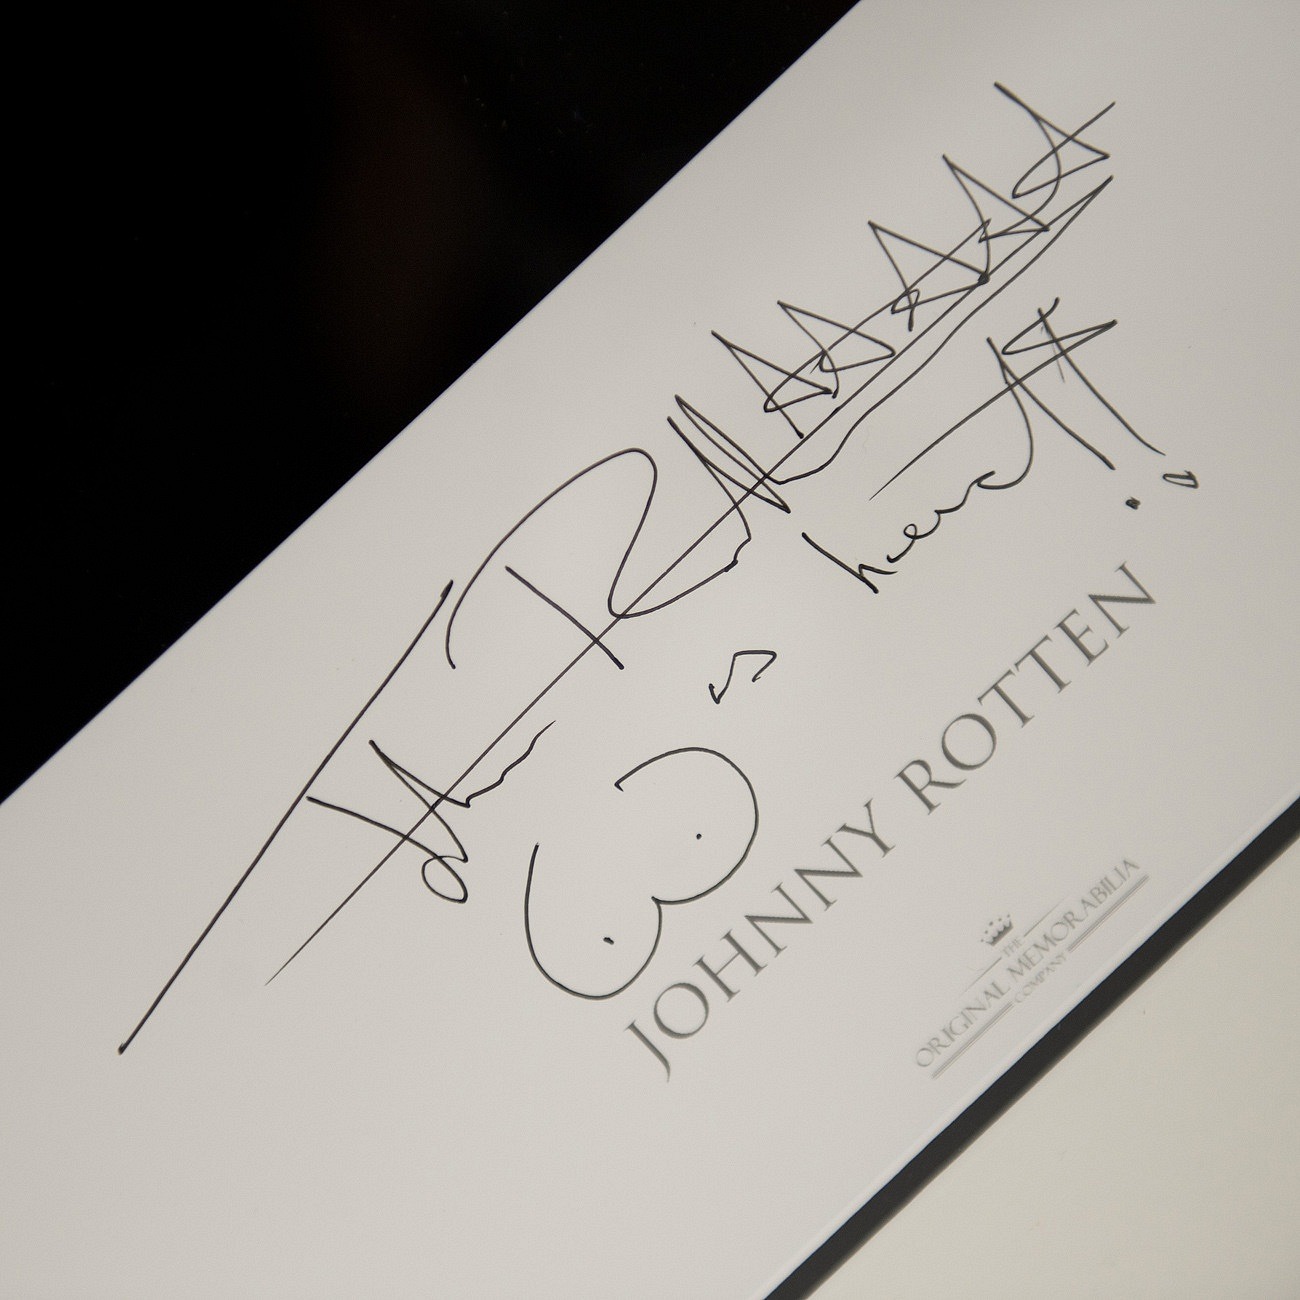 is
here!!
JOHNNY ROTTEN
THE
ORIGINAL MEMORABILIA
COMPANY